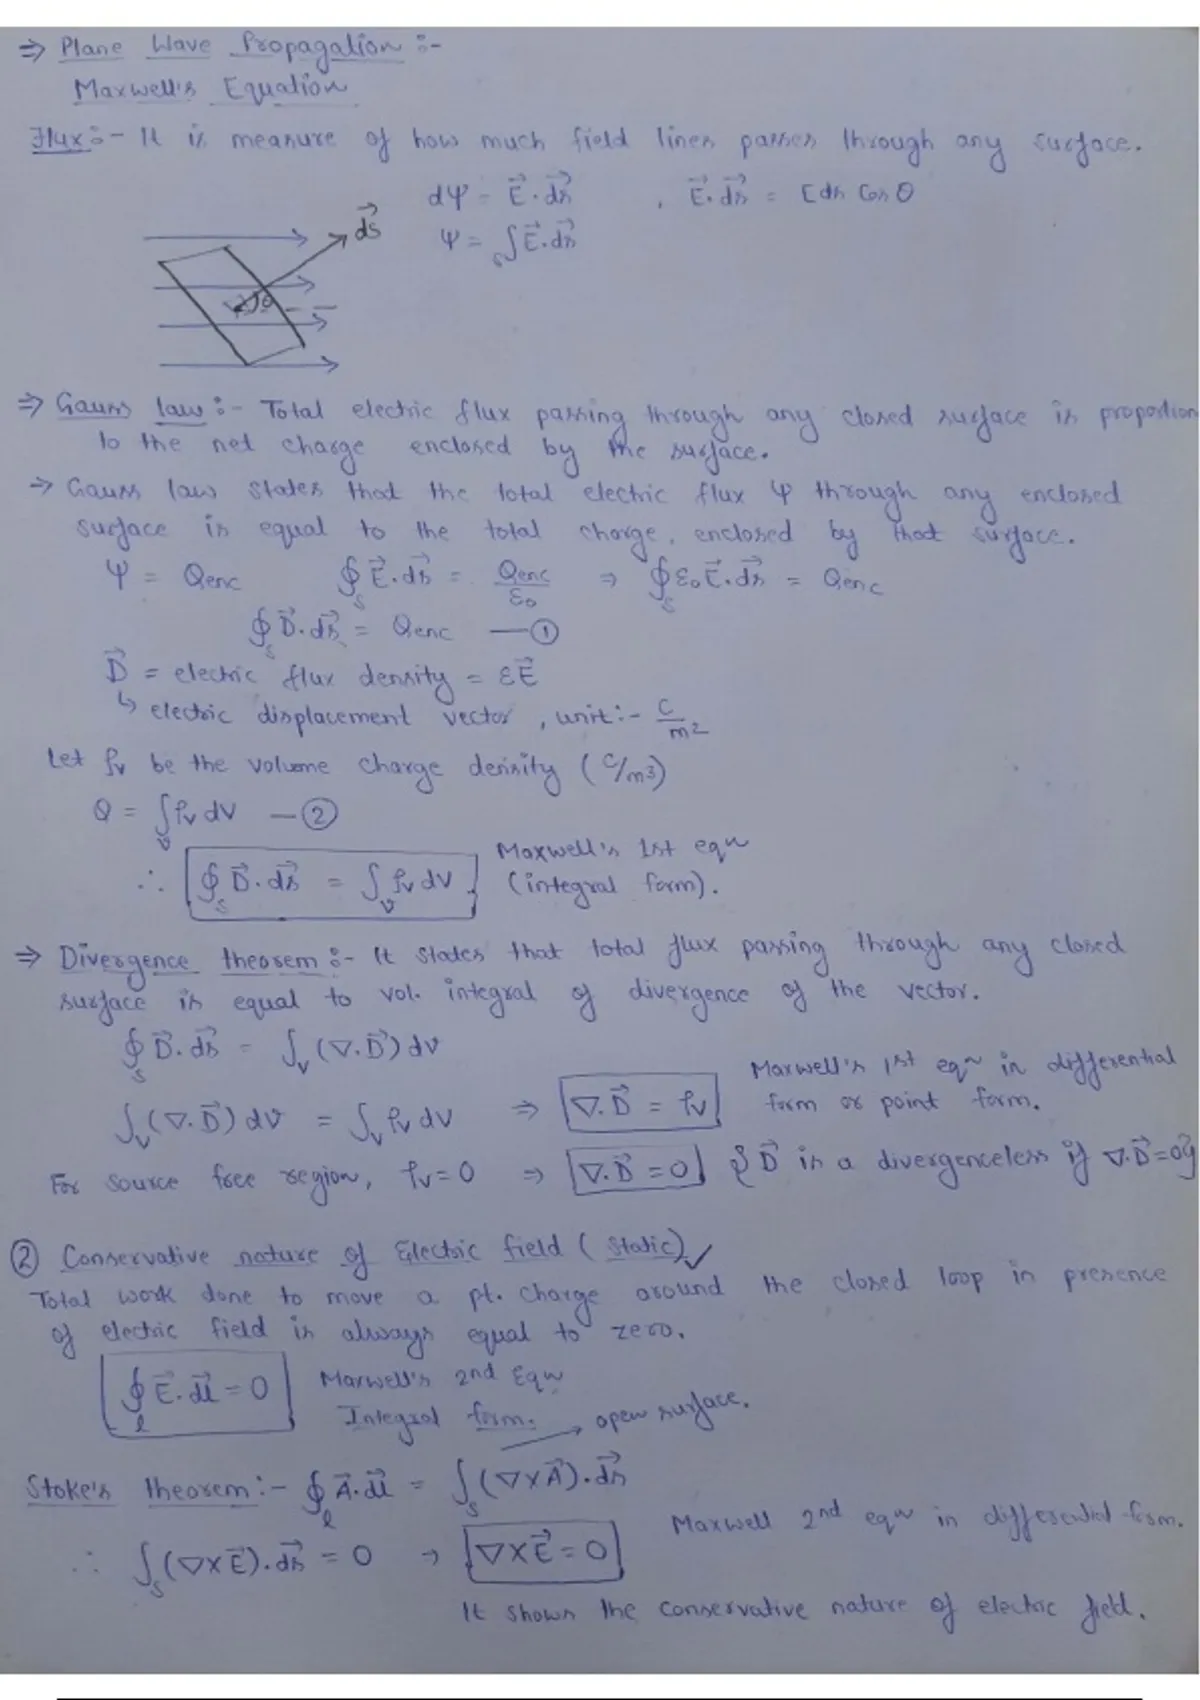 ⇒ Plane Wave Propagation :-
Maxwell's Equation
Flux :- It is measure of how much field lines passes through any surface.
dψ = E⃗·ds⃗ , E⃗·ds⃗ = E ds Cos θ
ds⃗
ψ = ∫ₛ E⃗·ds⃗
θ
⇒ Gauss law :- Total electric flux passing through any closed surface is proportion
to the net charge enclosed by the surface.
→ Gauss law states that the total electric flux ψ through any enclosed
surface is equal to the total charge, enclosed by that surface.
ψ = Qenc ∮ₛ E⃗·ds⃗ = Qenc/ε₀ ⇒ ∮ₛ ε₀E⃗·ds⃗ = Qenc
∮ₛ D⃗·ds⃗ = Qenc —①
D⃗ = electric flux density = εE⃗
↳ electric displacement vector, unit :- C/m²
Let ρv be the volume charge density (C/m³)
Q = ∫ᵥ ρv dV —②
∴ ∮ₛ D⃗·ds⃗ = ∫ᵥ ρv dV Maxwell's 1st eqn
(integral form).
⇒ Divergence theorem :- It states that total flux passing through any closed
surface is equal to vol. integral of divergence of the vector.
∮ₛ D⃗·ds⃗ = ∫ᵥ (∇·D⃗) dv
∫ᵥ (∇·D⃗) dv = ∫ᵥ ρv dv ⇒ ∇·D⃗ = ρv Maxwell's 1st eqn in differential
form or point form.
For source free region, ρv = 0 ⇒ ∇·D⃗ = 0 {D⃗ is a divergenceless if ∇·D⃗ = 0}
② Conservative nature of Electric field (Static) ✓
Total work done to move a pt. charge around the closed loop in presence
of electric field is always equal to zero.
∮ₗ E⃗·dl⃗ = 0 Maxwell's 2nd Eqn
Integral form. → open surface.
Stoke's theorem :- ∮ₗ A⃗·dl⃗ = ∫ₛ (∇×A⃗)·ds⃗
∴ ∫ₛ (∇×E⃗)·ds⃗ = 0 → ∇×E⃗ = 0 Maxwell 2nd eqn in differential form.
It shows the conservative nature of electric field.